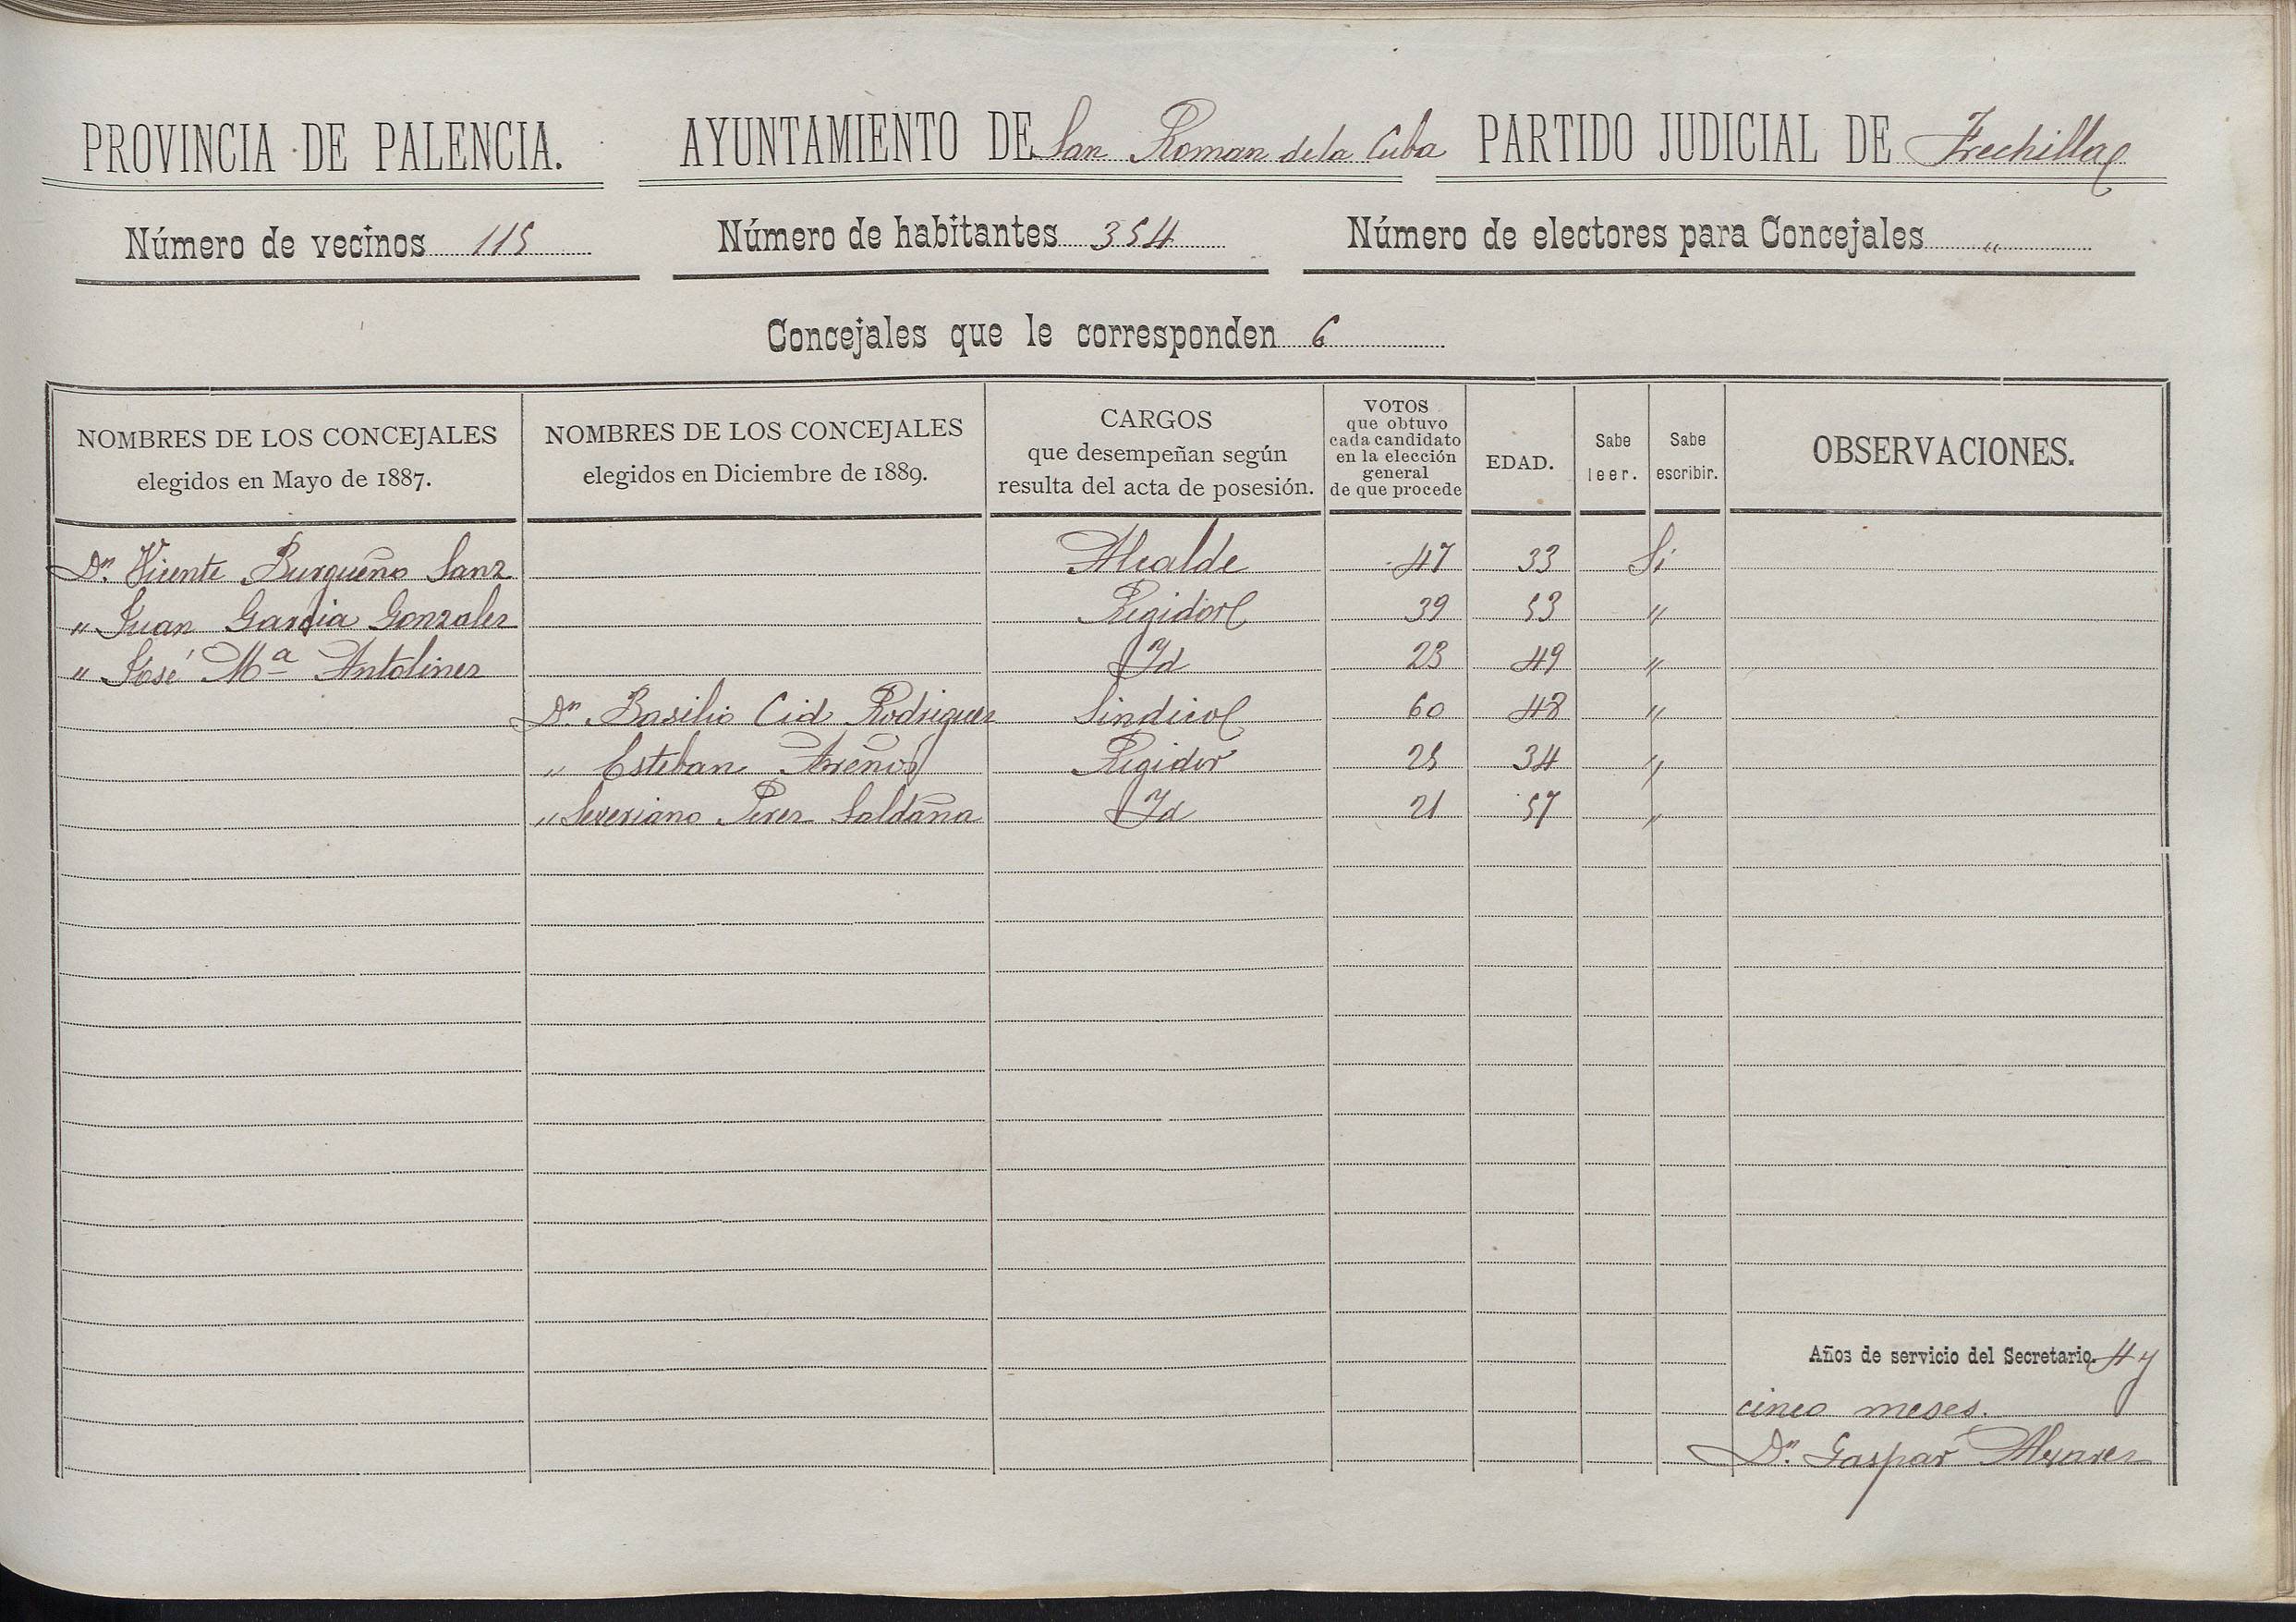 PROVINCIA DE PALENCIA. AYUNTAMIENTO DE San Roman de la Cuba PARTIDO JUDICIAL DE Frechilla
Número de vecinos 115 Número de habitantes 354 Número de electores para Concejales "
Concejales que le corresponden 6
NOMBRES DE LOS CONCEJALES elegidos en Mayo de 1887. NOMBRES DE LOS CONCEJALES elegidos en Diciembre de 1889. CARGOS que desempeñan según resulta del acta de posesión. VOTOS que obtuvo cada candidato en la elección general de que procede EDAD. Sabe leer. Sabe escribir. OBSERVACIONES.
Dn. Vicente Burgueño Sanz Alcalde 47 33 Si
" Juan Garcia Gonzalez Regidor 39 53 "
" José Mª Antolinez Id 23 49 "
Dn. Basilio Cid Rodriguez Sindico 60 48 "
" Esteban Arreños Regidor 25 34 "
" Severiano Perez Saldaña Id 21 57 "
Años de servicio del Secretario. 4 y
cinco meses.
Dn. Gaspar Alvarez